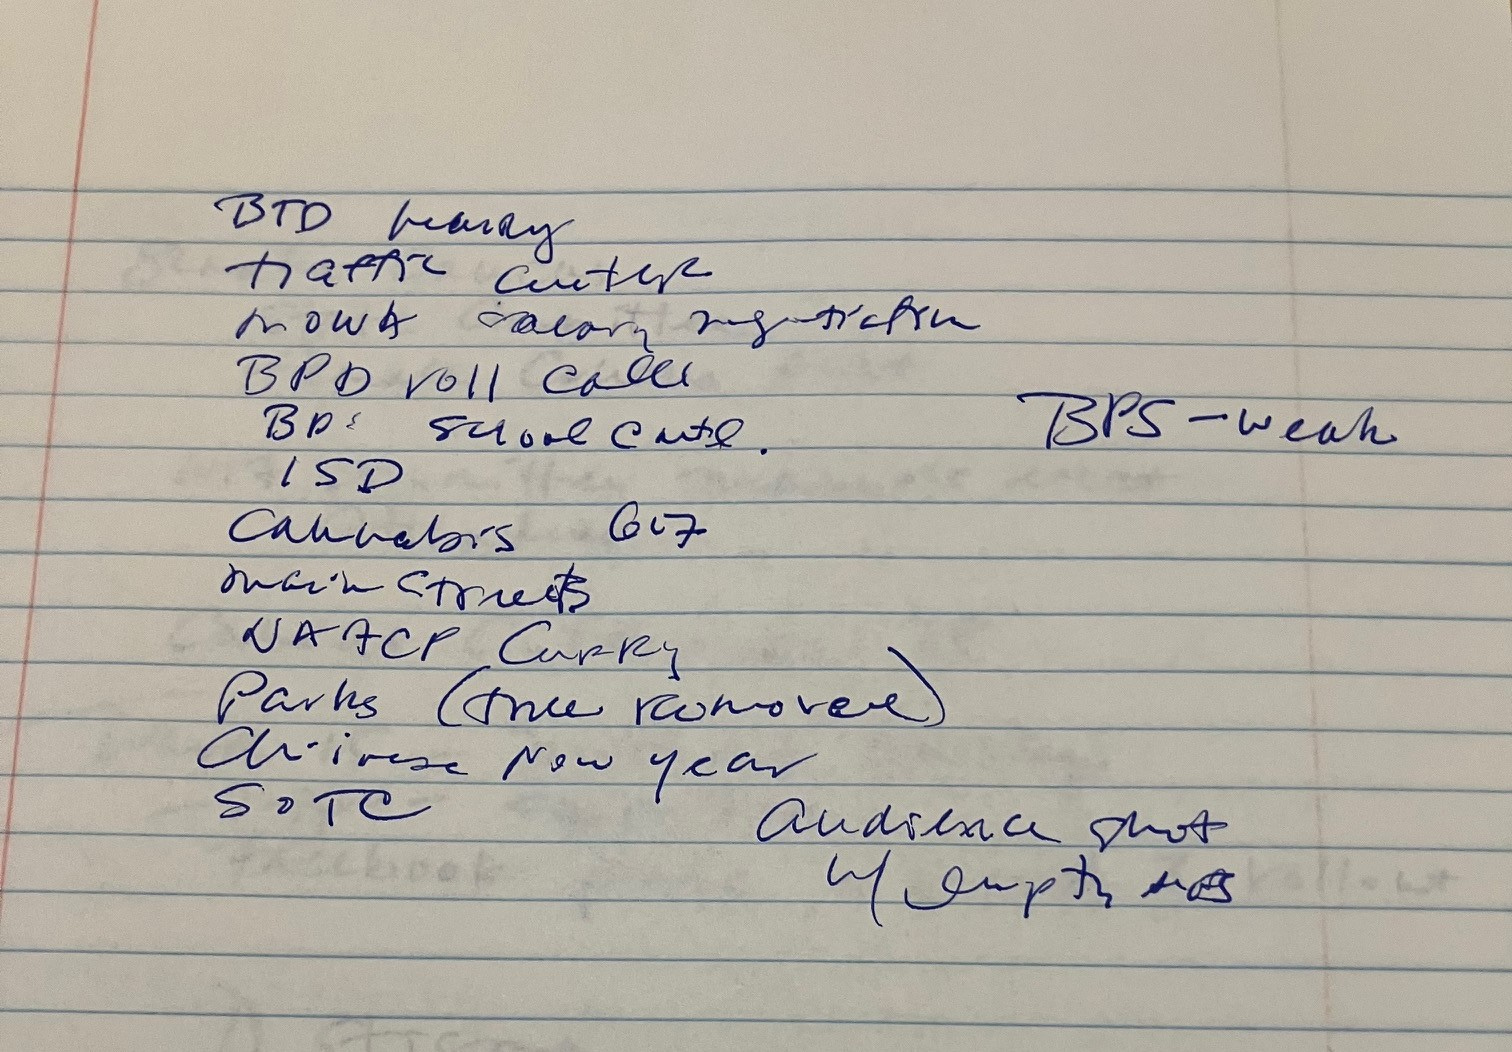 BTD hearing
traffic center
MOWA salary negotiation
BPD roll calls
BPS School Cmte.
BPS - weak
ISD
Cannabis 617
main streets
NAACP Curry
Parks (tree removal)
Chinese New year
SOTC
Audience shot
w/ empty